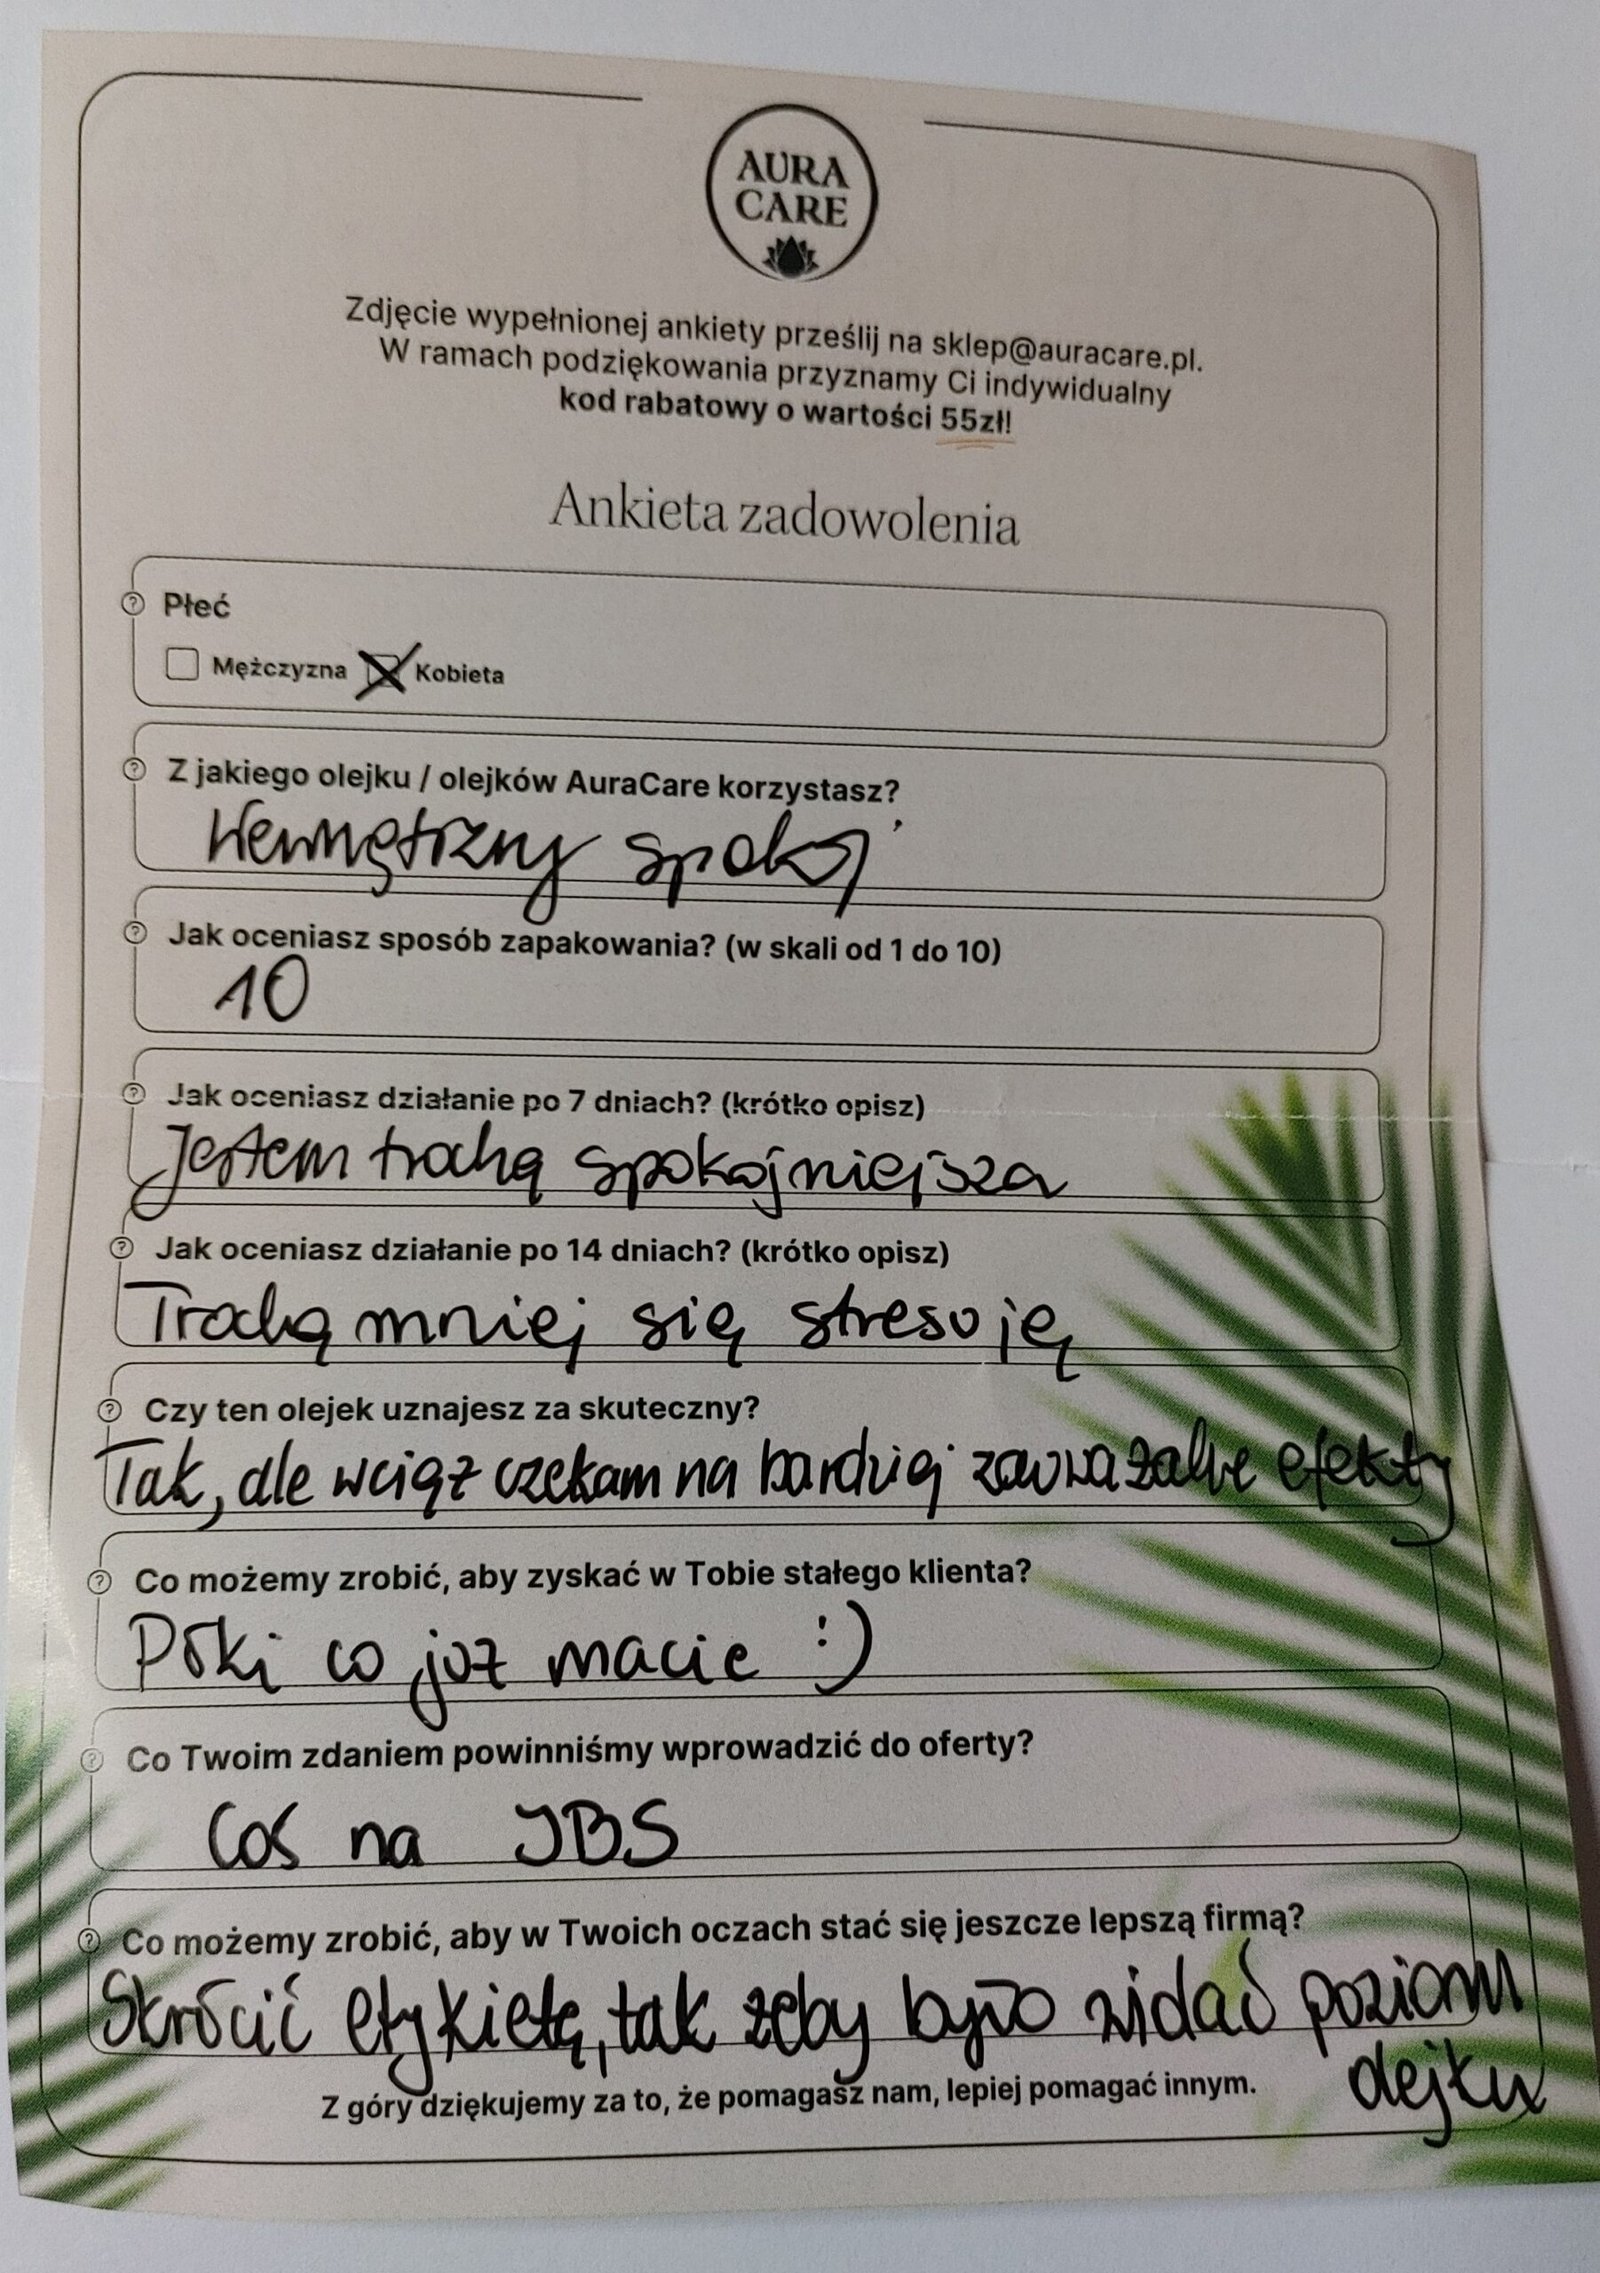 AURA
CARE
Zdjęcie wypełnionej ankiety prześlij na sklep@auracare.pl.
W ramach podziękowania przyznamy Ci indywidualny
kod rabatowy o wartości 55zł!
Ankieta zadowolenia
Płeć
Mężczyzna Kobieta
Z jakiego olejku / olejków AuraCare korzystasz?
Wewnętrzny spokój
Jak oceniasz sposób zapakowania? (w skali od 1 do 10)
10
Jak oceniasz działanie po 7 dniach? (krótko opisz)
Jestem trochę spokojniejsza
Jak oceniasz działanie po 14 dniach? (krótko opisz)
Trochę mniej się stresuję
Czy ten olejek uznajesz za skuteczny?
Tak, ale wciąż czekam na bardziej zauważalne efekty
Co możemy zrobić, aby zyskać w Tobie stałego klienta?
Póki co już macie :)
Co Twoim zdaniem powinniśmy wprowadzić do oferty?
Coś na IBS
Co możemy zrobić, aby w Twoich oczach stać się jeszcze lepszą firmą?
Skrócić etykietę, tak żeby było widać poziom
olejku
Z góry dziękujemy za to, że pomagasz nam, lepiej pomagać innym.